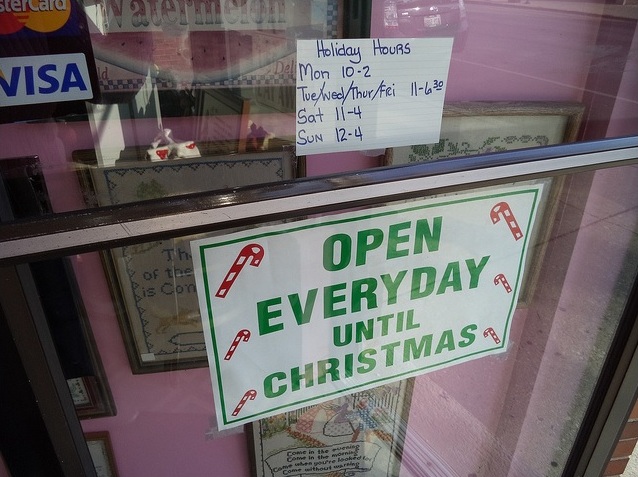 sterCard
VISA
Watermelon
Holiday Hours
Mon 10-2
Tue/Wed/Thur/Fri 11-6 30
Sat 11-4
Sun 12-4
OPEN
EVERYDAY
UNTIL
CHRISTMAS
of the
is Con
Come in the evening
Come in the morning
Come when you're looked for
Come without warning